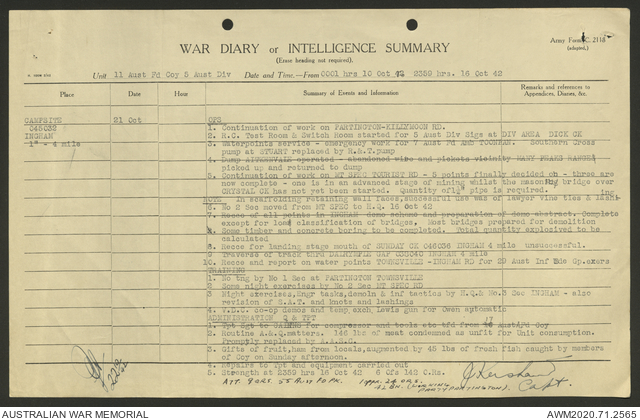 Army Form C. 2118
(adapted.)
WAR DIARY or INTELLIGENCE SUMMARY
(Erase heading not required).
Unit 11 Aust Fd Coy 5 Aust Div Date and Time.—From 0001 hrs 10 Oct 42 2359 hrs. 16 Oct 42
Place Date Hour Summary of Events and Information Remarks and references to Appendices, Diaries, &c.
CAMPSITE 21 Oct OPS
045032
INGHAM
1" - 4 mile
1. Continuation of work on PARTINGTON-KILLYMOON RD.
2. R.C. Test Room & Switch Room started for 5 Aust Div Sigs at DIV AREA DICK CK
3. Waterpoints service - emergency work for 7 Aust Fd Amb TOONPAN. Southern Cross
pump at STUART replaced by R.M.T. pump
4. Dump AITKENVALE operated - abandoned wire and pickets vicinity MANY PEAKS RANGE
picked up and returned to dump
5. Continuation of work on MT SPEC TOURIST RD - 5 points finally decided on - three are
now complete - one is in an advanced stage of mining whilst the masonry bridge over
CRYSTAL CK has not yet been started. Quantity of pipe is required.
NOTE In scaffolding retaining wall faces, successful use was of lawyer vine ties & lashing
6. No 2 Sec moved from MT SPEC to H.Q. 16 Oct 42
7. Recce of all points in INGHAM demo scheme and preparation of demo abstract. Complete
except for load classification of bridges. Most bridges prepared for demolition
8. Some timber and concrete boring to be completed. Total quantity explosived to be
calculated
Recce for landing stage mouth of SUNDAY CK 046036 INGHAM 4 mile unsuccessful.
9 Traverse of track thru DALRYMPLE GAP 035040 INGHAM 4 mile
10. Recce and report on water points TOWNSVILLE - INGHAM RD for 29 Aust Inf Bde Gp.exers
TRAINING
1. No tng by No 1 Sec at PARTINGTON TOWNSVILLE
2 Some night exercises by No 2 Sec MT SPEC RD
3 Night exercises, Engr tasks, demoln & inf tactics by H.Q.& No.3 Sec INGHAM - also
revision of S.A.T. and knots and lashings
4. V.D.C. co-op demos and temp exch Lewis gun for Owen automatic
ADMINISTRATION Q & TPT
1. Tpt dgt to CAIRNS for compressor and tools etc tfd from 17 Aust Fd Coy
2. Routine A.& Q. matters. 146 lbs of meat condemned as unfit for Unit consumption.
Promptly replaced by A.A.S.C.
3. Gifts of fruit, ham from locals, augmented by 45 lbs of fresh fish caught by members
of Coy on Sunday afternoon.
4. Repairs to tpt and equipment carried out
5. Strength at 2359 hrs 16 Oct 42 6 Ofs 143 O.Rs.
ATT. 9 ORS. 55 AUST FD PK.
PARTY PARTINGTON).
J. Kershaw
Capt.
AUSTRALIAN WAR MEMORIAL
AWM2020.71.2565